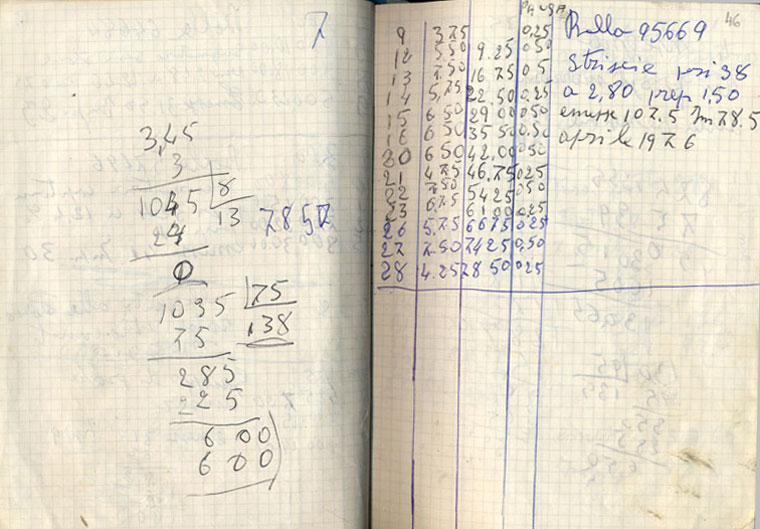 7
3,45
3
1045 8
24 13 7857
0
1035 75
75 138
285
225
600
600
46
PAUSA
9 3.75 0.25
12 5.50 9.25 0.50
13 7.50 16.75 0.5
14 5.75 22.50 0.25
15 6.50 29.00 0.50
16 6.50 35.50 0.50
20 6.50 42.00 0.50
21 4.75 46.75 0.25
22 7.50 54.25 0.50
23 6.75 61.00 0.25
26 5.75 66.75 0.25
27 7.50 74.25 0.50
28 4.25 78.50 0.25
Rullo 95669
Striscie 38
a 2,80 prep 1,50
107.5 78.5
aprile 1976